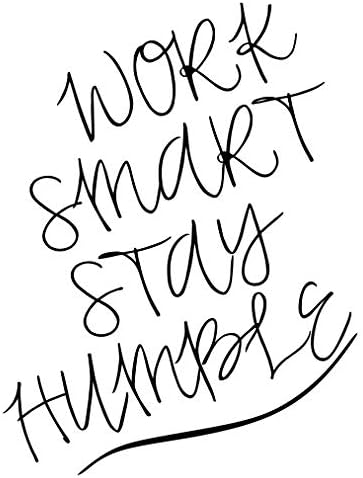 WORK
SMART
STAY
HUMBLE